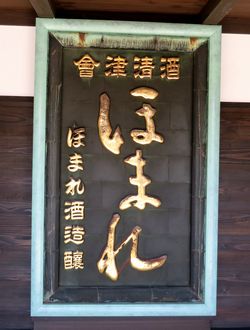 會津清酒
ほまれ
ほまれ酒造釀